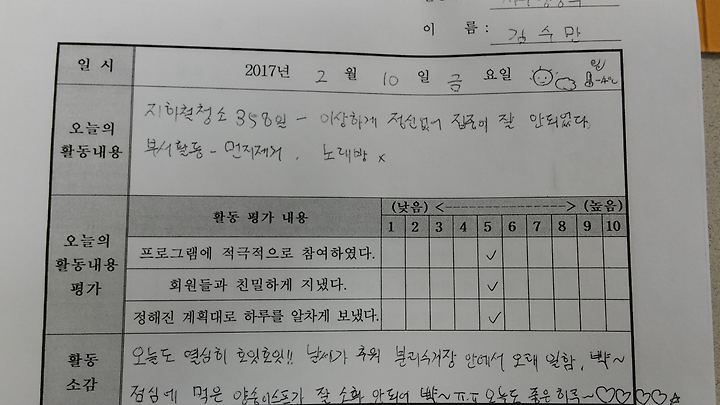 이 름 : 김 수 만
일 시 2017년 2 월 10 일 금 요일 -4℃
오늘의 활동내용
지하철청소 358일 - 이상하게 정신없어 집중이 잘 안되었다.
부서활동 - 먼지제거. 노래방 x
오늘의 활동내용 평가
활동 평가 내용 (낮음) <---------------> (높음)
1 2 3 4 5 6 7 8 9 10
프로그램에 적극적으로 참여하였다. ✓
회원들과 친밀하게 지냈다. ✓
정해진 계획대로 하루를 알차게 보냈다. ✓
활동 소감
오늘도 열심히 호잇호잇!! 날씨가 추워 분리수거장 안에서 오래 일함, 뺙~
점심에 먹은 양송이스프가 잘 소화 안되어 뺙~ ㅠ.ㅠ 오늘도 좋은하루~♡♡♡♡☆